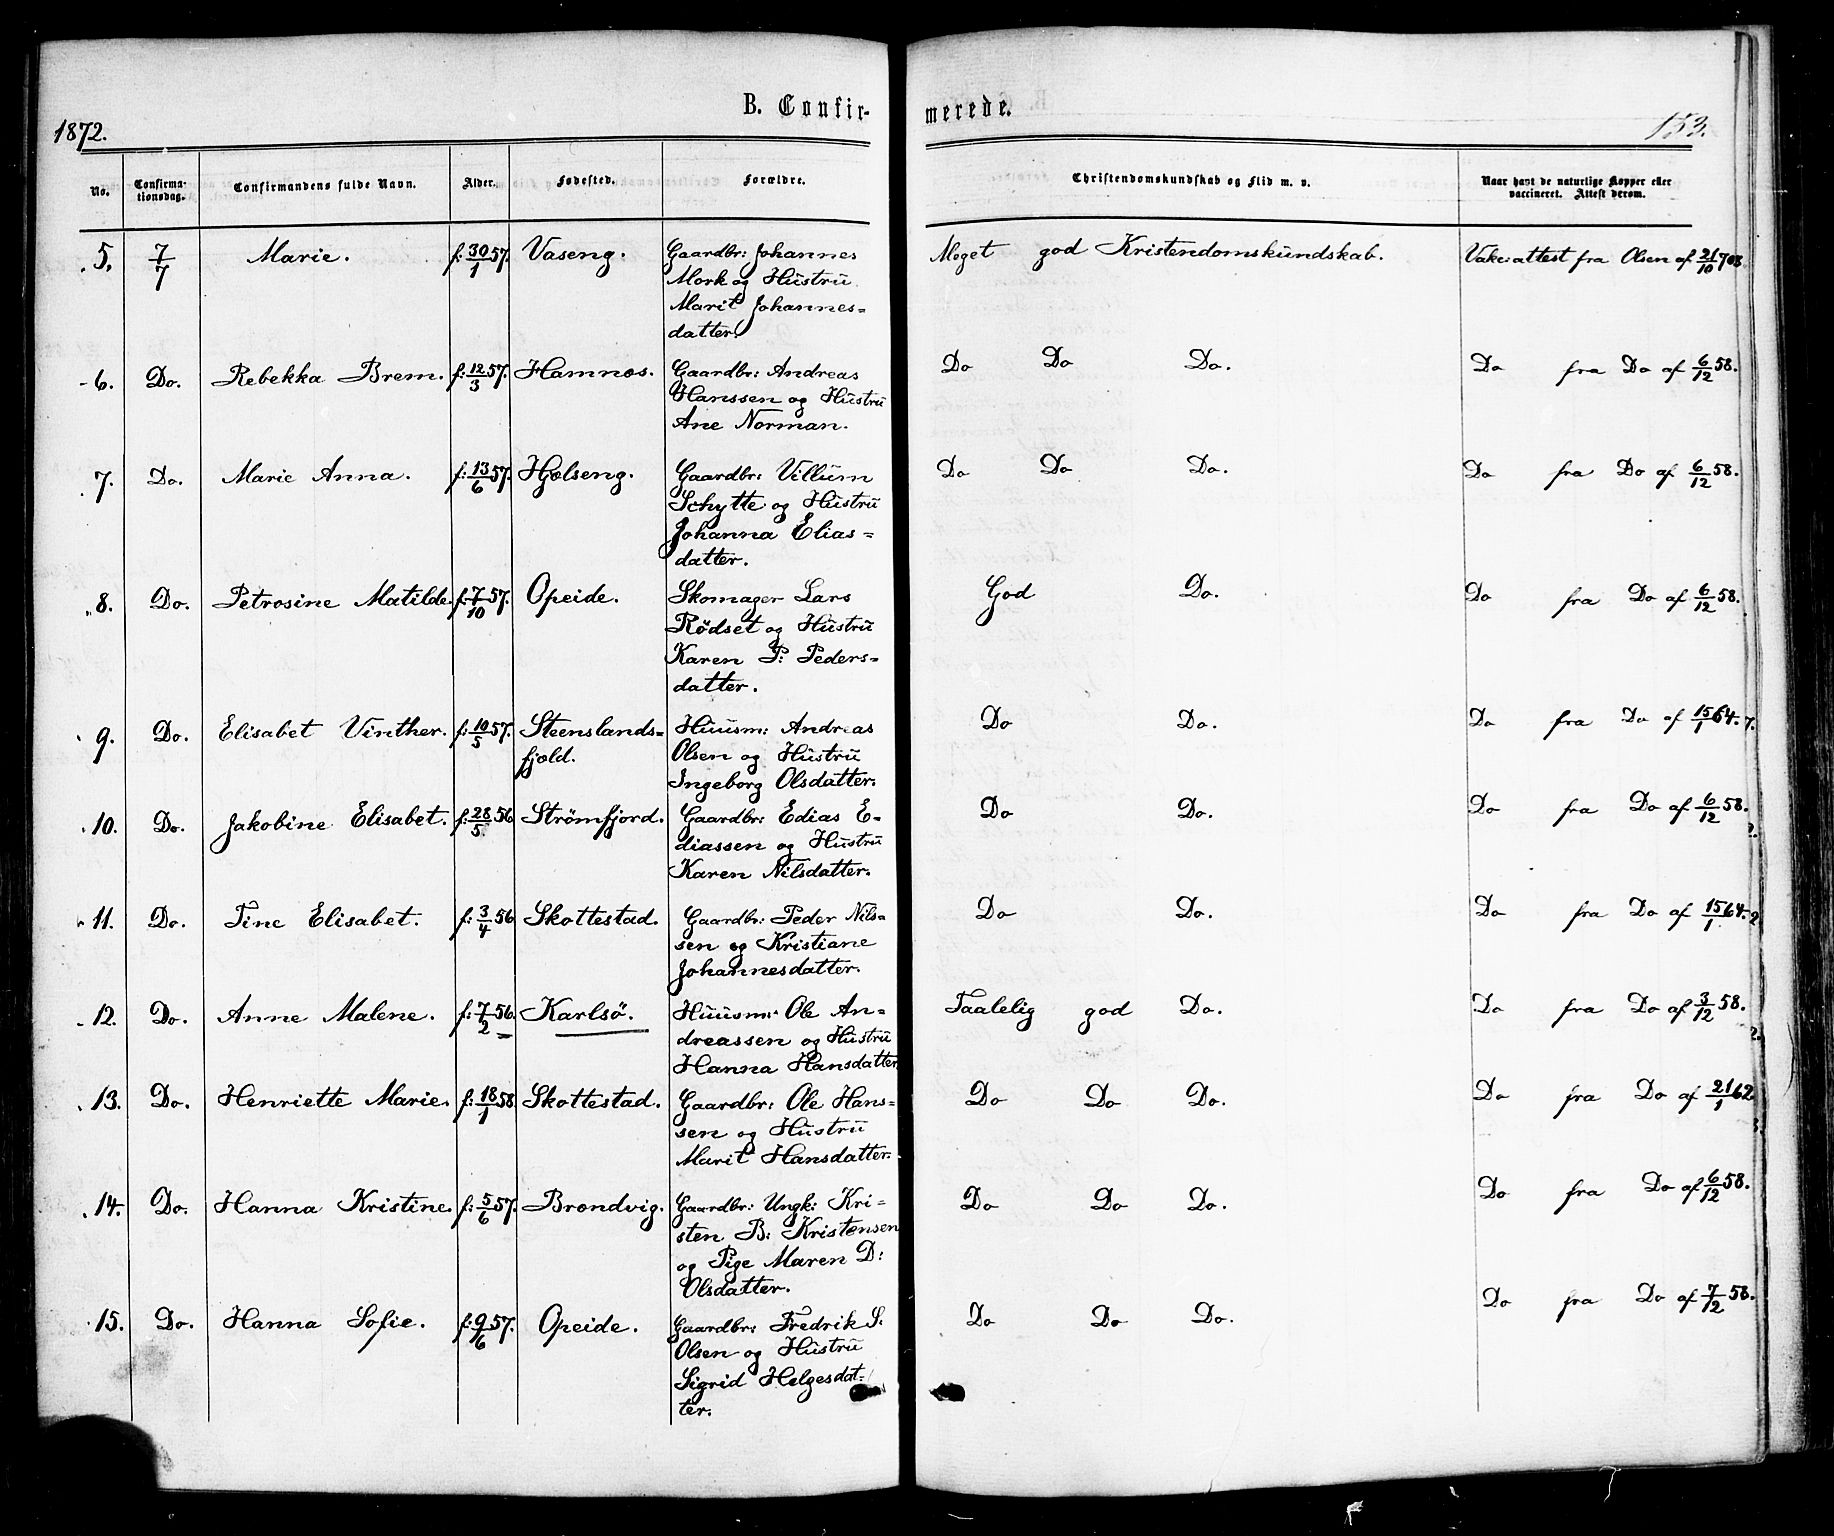 1872.
B. Confirmerede.
153.
No. Confirmationsdag. Confirmandens fulde Navn. Alder. Fødested. Forældre. Christendomskundskab og Flid m. v. Naar havt de naturlige Kopper eller vaccineret. Attest derom.
5. 7/7 Marie. f: 30/1 57. Vaseng. Gaardbr: Johannes Meget god Kristendomskundskab. Vak: attest fra Olsen af 21/10
Mork og Hustru
Marit Johannes=
datter.
6. Do. Rebekka Brem. f: 12/3 57. Hamnes. Gaardbr: Andreas Do Do Do. Do fra Do af 6/12 58.
Hanssen og Hustru
Ane Norman.
7. Do. Marie Anna. f: 13/6 57. Hjelseng. Gaardbr: Villum Do Do Do. Do fra Do af 6/12 58.
Schytte og Hustru
Johanna Elias=
datter.
8. Do. Petrosine Matilde. f: 7/10 57. Opeide. Skomager Lars God Do. Do fra Do af 6/12 58.
Rödset og Hustru
Karen P: Peders=
datter.
9. Do. Elisabet Vinther. f: 10/5 57. Steenslands= Huusm: Andreas Do Do. Do fra Do af 15/1 64.
fjeld. Olsen og Hustru
Ingeborg Olsdatter.
10. Do. Jakobine Elisabet. f: 28/5 56 Strömfjord. Gaardbr: Edias E= Do Do. Do fra Do af 6/12 58.
diassen og Hustru
Karen Nilsdatter.
11. Do. Tine Elisabet. f: 3/4 56 Skottestad. Gaardbr: Peder Nils= Do Do. Do fra Do af 15/1 64.
sen og Kristiane
Johannesdatter.
12. Do. Anne Malene. f: 7/2 56. Karlsö. Huusm: Ole An= Taalelig god Do. Do fra Do af 3/12 58.
dreassen og Hustru
Hanna Hansdatter
13. Do. Henriette Marie. f: 18/1 58 Skottestad. Gaardbr: Ole Hans= Do Do Do. Do fra Do af 21/1 62
sen og Hustru
Marit Hansdatter.
14. Do. Hanna Kristine. f: 5/6 57. Brendvig. Gaardbr: Ungk: Kri= Do Do Do. Do fra Do af 6/12 58.
sten B: Kristensen
og Pige Maren D:
Olsdatter.
15. Do. Hanna Sofie. f: 9/6 57. Opeide. Gaardbr: Fredrik S: Do Do Do. Do fra Do af 7/12 58.
Olsen og Hustru
Sigrid Helgesdat=
ter.